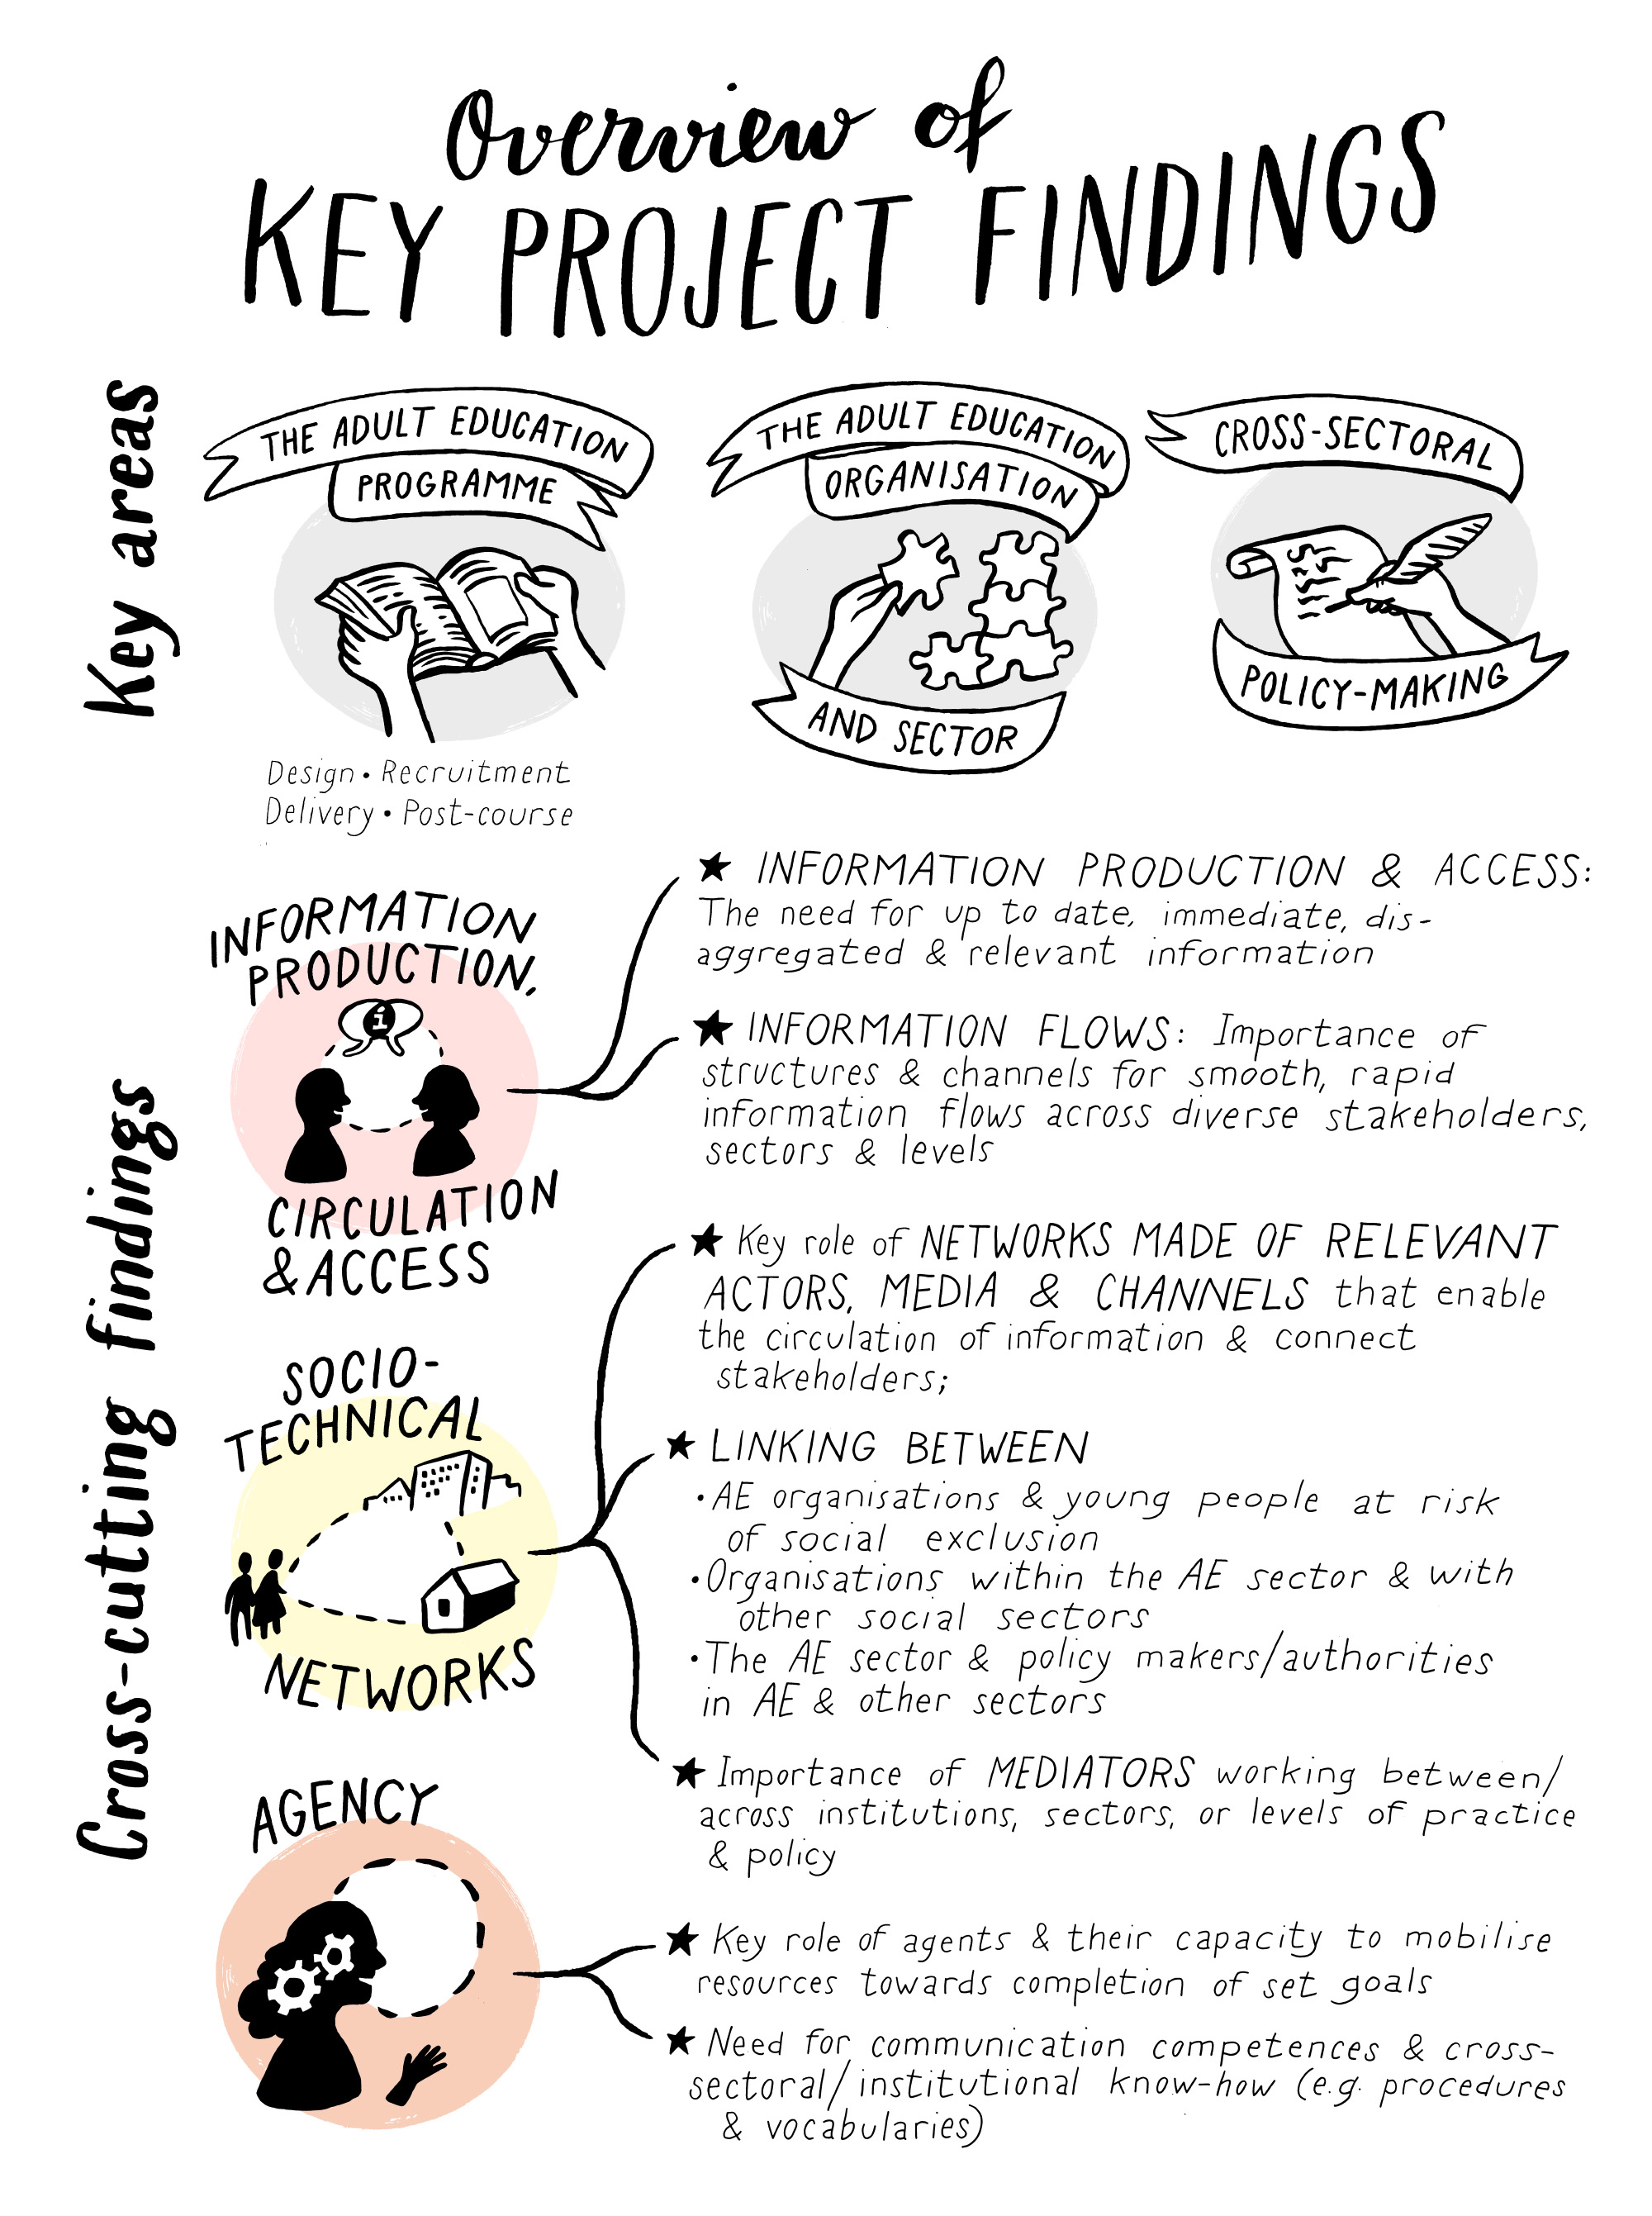 Overview of
KEY PROJECT FINDINGS
Key areas
THE ADULT EDUCATION
PROGRAMME
Design • Recruitment
Delivery • Post-course
THE ADULT EDUCATION
ORGANISATION
AND SECTOR
CROSS-SECTORAL
POLICY-MAKING
Cross-cutting findings
INFORMATION
PRODUCTION,
i
CIRCULATION
& ACCESS
★ INFORMATION PRODUCTION & ACCESS:
The need for up to date, immediate, dis-
aggregated & relevant information
★ INFORMATION FLOWS: Importance of
structures & channels for smooth, rapid
information flows across diverse stakeholders,
sectors & levels
SOCIO-
TECHNICAL
NETWORKS
★ Key role of NETWORKS MADE OF RELEVANT
ACTORS, MEDIA & CHANNELS that enable
the circulation of information & connect
stakeholders;
★ LINKING BETWEEN
• AE organisations & young people at risk
of social exclusion
• Organisations within the AE sector & with
other social sectors
• The AE sector & policy makers/authorities
in AE & other sectors
★ Importance of MEDIATORS working between/
across institutions, sectors, or levels of practice
& policy
AGENCY
★ Key role of agents & their capacity to mobilise
resources towards completion of set goals
★ Need for communication competences & cross-
sectoral/institutional know-how (e.g. procedures
& vocabularies)